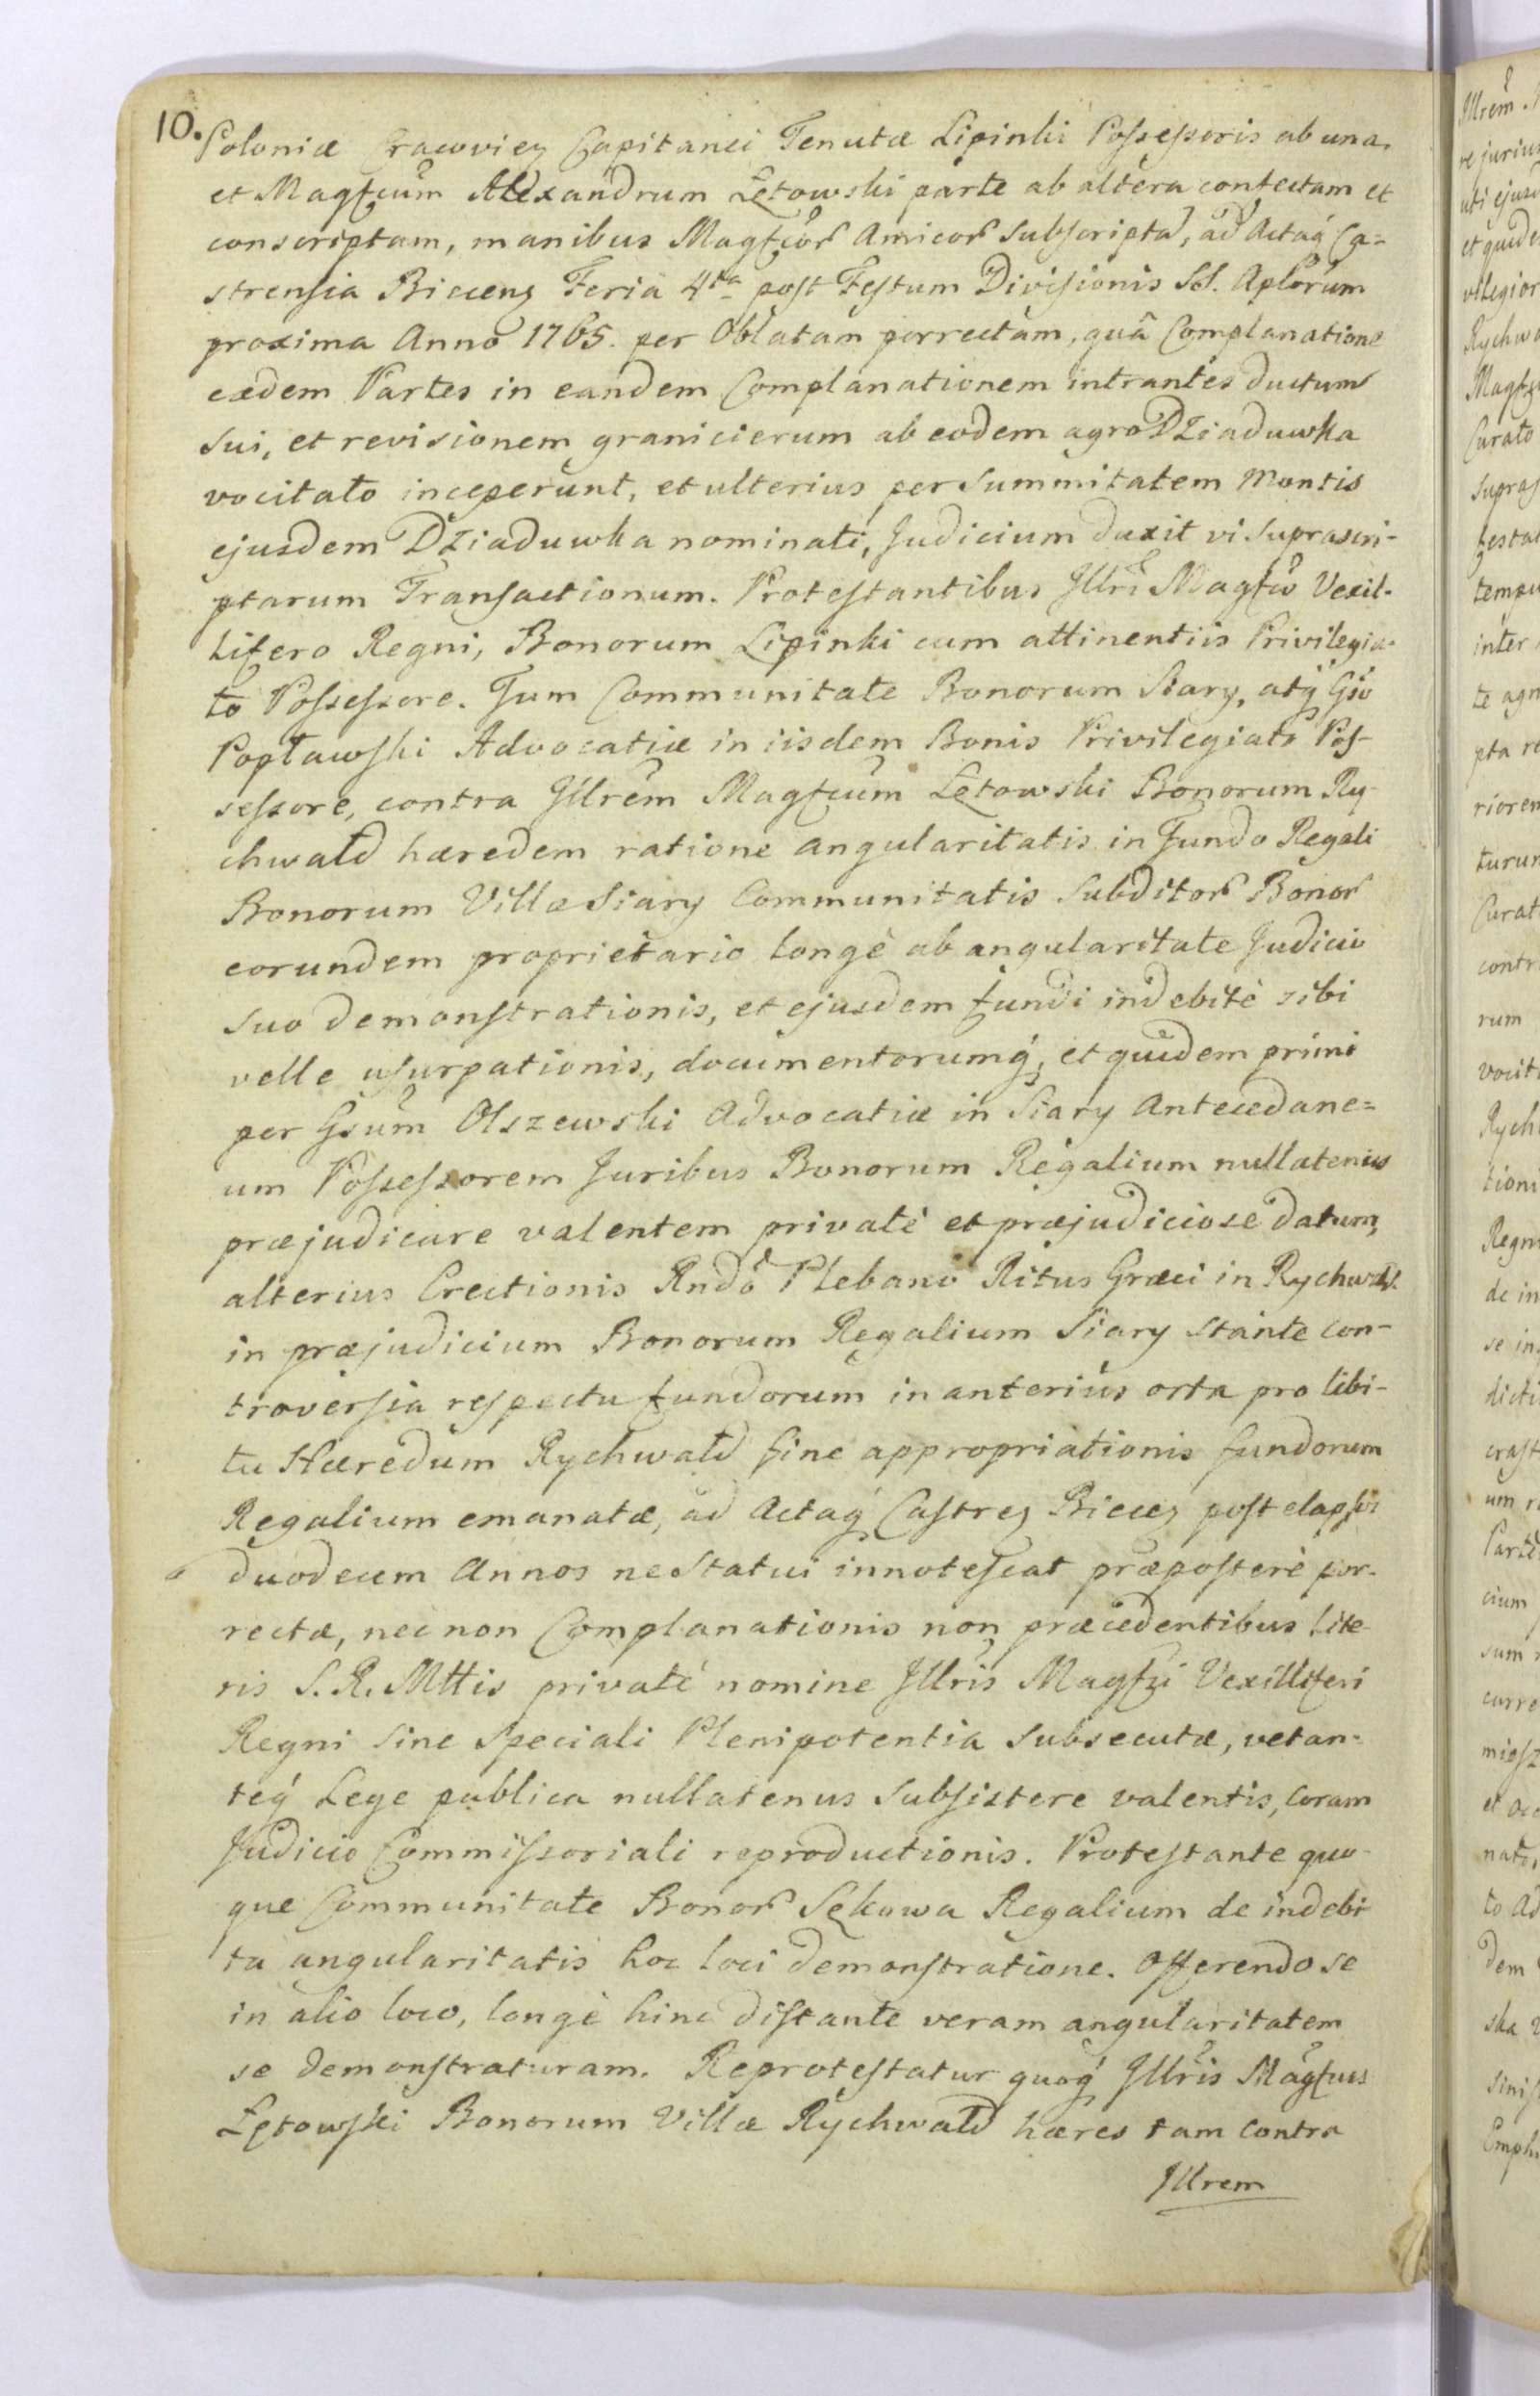 10. Poloniæ Cracovien Capitanei Tenutæ Lipinki Possessoris ab una,
et Magfcum Alexandrum Łętowski parte ab altera contectam et
conscriptam, manibus Magfcor Amicor subscripta, ad Actaq́ Ca=
strensia Biecens Feria 4ta post Festum Divisionis SS. Aplorum
proxima Anno 1765. per Oblatam porrectam, quâ Complanatione
eædem Partes in eandem Complanationem intrantes ductum
sui, et revisionem granicierum ab eodem agro Dziaduwka
vocitato inceperunt, et ulterius per summitatem Montis
ejusdem Dziaduwka nominati, Judicium duxit vi suprascri-
ptarum Transactionum. Protestantibus Jllri Magfco Vexil-
lifero Regni, Bonorum Lipinki cum attinentiis Privilegia-
to Possessore. Tum Communitate Bonorum Siary, atq́ Gso
Popławski Advocatiæ in iisdem Bonis Privilegiato Pos-
sessore, contra Jllrem Magfcum Łętowski Bonorum Ry-
chwałd hæredem ratione angularitatis in Fundo Regali
Bonorum Villæ Siary Communitatis Subditor Bonor
eorundem proprietario longè ab angularitate Judicio
suo demonstrationis, et ejusdem fundi indebitè sibi
velle usurpationis, documentorumq́, et quidem primi
per Gsum Olszewski Advocatiæ in Siary Antecedane=
um Possessorem Juribus Bonorum Regalium nullatenus
præjudicare valentem privatè et præjudiciose datum,
alterius Erectionis Rndo Plebano Ritus Græci in Rychwałd
in præjudicium Bonorum Regalium Siary stante con-
troversia respectu fundorum in anterius orta pro libi-
tu Hæredum Rychwałd fine appropriationis fundorum
Regalium emanatæ, ad Actaq́ Castren Biecen post elapsos
duodecem Annos ne Statui innotescat præposterè por-
rectæ, nec non Complanationis non præcedentibus lite-
ris S. R. Mttis privatè nomine Jllris Magfci Vexilliferi
Regni sine speciali Plenipotentia subsecutæ, vetan-
teq́ Lege publica nullatenus subsistere valentis, coram
Judicio Commissoriali reproductionis. Protestante quo-
que Communitate Bonor Sękowa Regalium de indebi
ta angularitatis hoc loci demonstratione. Offerendo se
in alio loco, longè hinc distante veram angularitatem
se demonstraturam. Reprotestatur quoq́ Jllris Magfcus
Łętowski Bonorum Villæ Rychwałd hæres tam contra
Jllrem